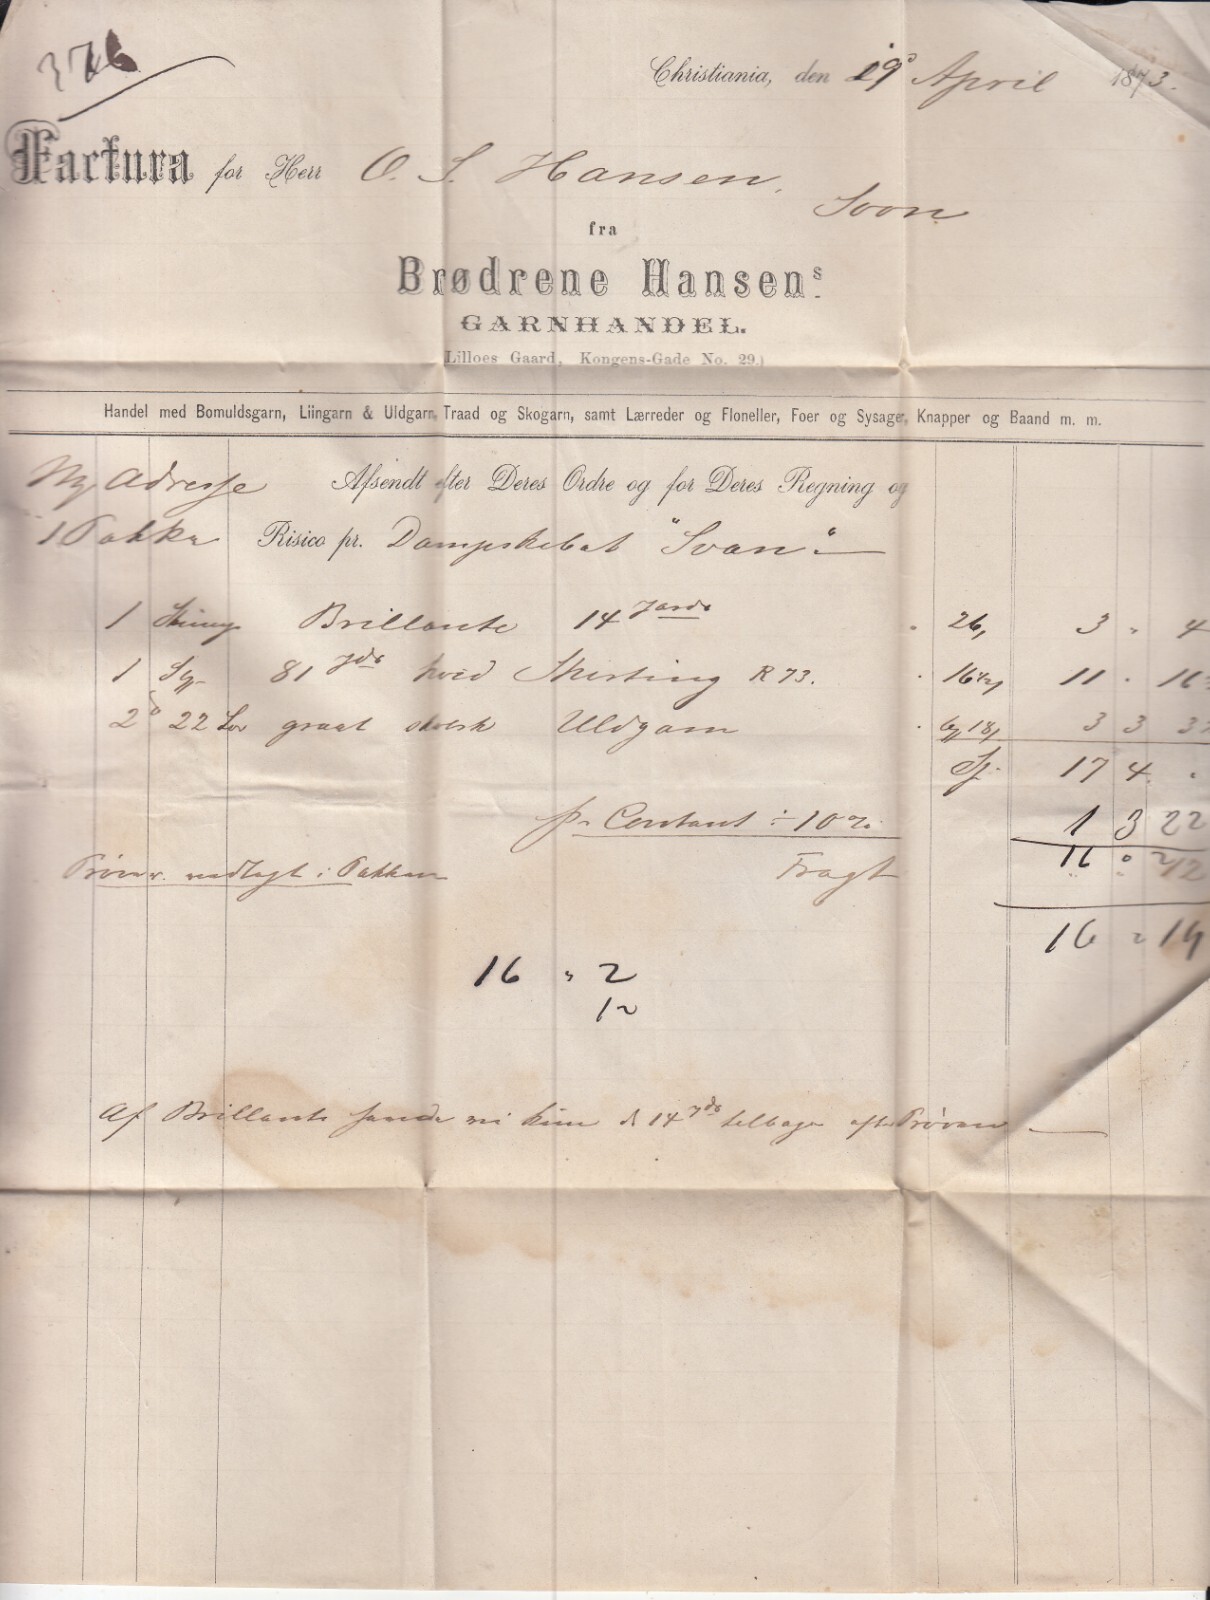 376
Christiania, den 19 April 1873.
Factura for Herr O. S. Hansen.
Soon
fra
Brødrene Hansens
GARNHANDEL.
(Lilloes Gaard, Kongens-Gade No. 29.)
Handel med Bomuldsgarn, Liingarn & Uldgarn, Traad og Skogarn, samt Lærreder og Floneller, Foer og Sysager, Knapper og Baand m. m.
Ny Adresse Afsendt efter Deres Ordre og for Deres Regning og
1 Pakke Risico pr. Dampskibet "Svan"
1 Brillante 14 Yards 26, 3 " 4
1 81 Yds hvid Shirting R 73. 16 1/2 11 . 16
2 22 Lod graat Uldgarn 18 3 3
17 4 .
pr Contant ÷ 10 % 1 3 22
16 0
Prøver vedlagt i Pakken Fragt
16 " 14
16 " 2
12
Af Brillante vi kun 14 Yds tilbage Prøven